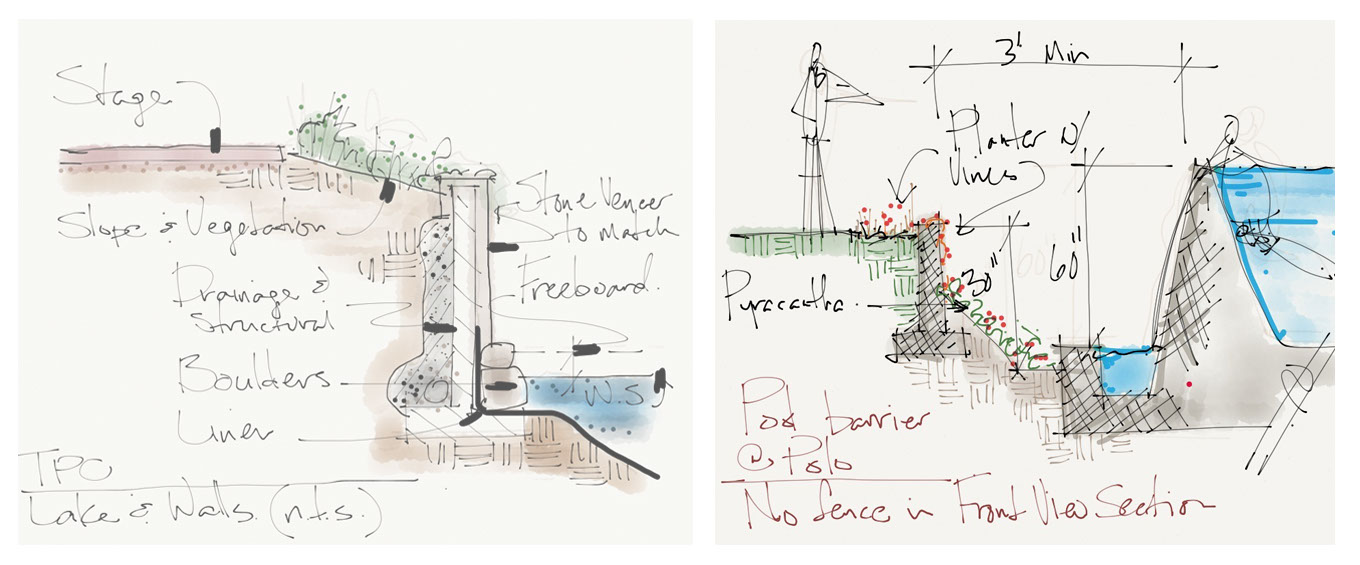 Stage
Slope & Vegetation
Stone Veneer
to match
Freeboard.
Drainage &
Structural
Boulders
Liner
W.S.
TPC
Lake & Walls. (n.t.s.)
3' Min
Planter w/
Vines
30"
60"
60"
Pyracantha.
Pool barrier
@ Polo
No fence in Front View Section